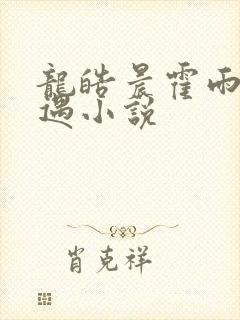 龍皓晨霍雨
遇小說
肖克祥